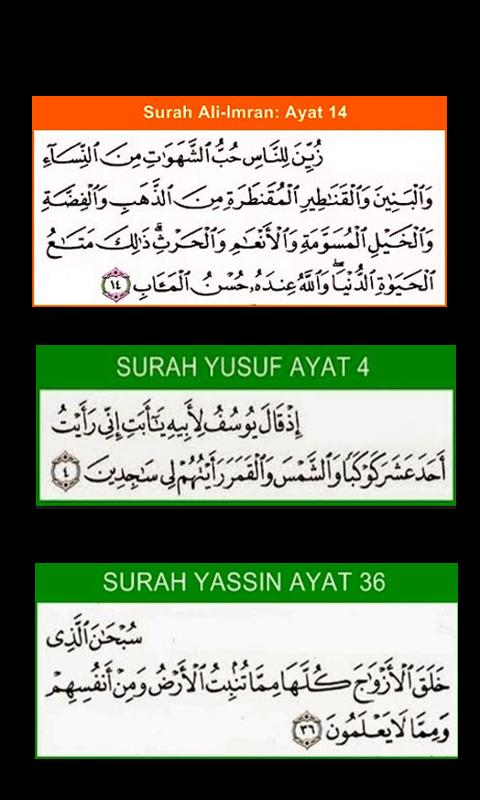 Surah Ali-Imran: Ayat 14
زُيِّنَ لِلنَّاسِ حُبُّ الشَّهَوَٰتِ مِنَ النِّسَآءِ
وَالْبَنِينَ وَالْقَنَٰطِيرِ الْمُقَنطَرَةِ مِنَ الذَّهَبِ وَالْفِضَّةِ
وَالْخَيْلِ الْمُسَوَّمَةِ وَالْأَنْعَٰمِ وَالْحَرْثِ ۗ ذَٰلِكَ مَتَٰعُ
الْحَيَوٰةِ الدُّنْيَا ۖ وَاللَّهُ عِندَهُۥ حُسْنُ الْمَـَٔابِ ١٤
SURAH YUSUF AYAT 4
إِذْ قَالَ يُوسُفُ لِأَبِيهِ يَٰٓأَبَتِ إِنِّي رَأَيْتُ
أَحَدَ عَشَرَ كَوْكَبًا وَالشَّمْسَ وَالْقَمَرَ رَأَيْتُهُمْ لِي سَٰجِدِينَ ٤
SURAH YASSIN AYAT 36
سُبْحَٰنَ الَّذِي
خَلَقَ الْأَزْوَٰجَ كُلَّهَا مِمَّا تُنۢبِتُ الْأَرْضُ وَمِنْ أَنفُسِهِمْ
وَمِمَّا لَا يَعْلَمُونَ ٣٦